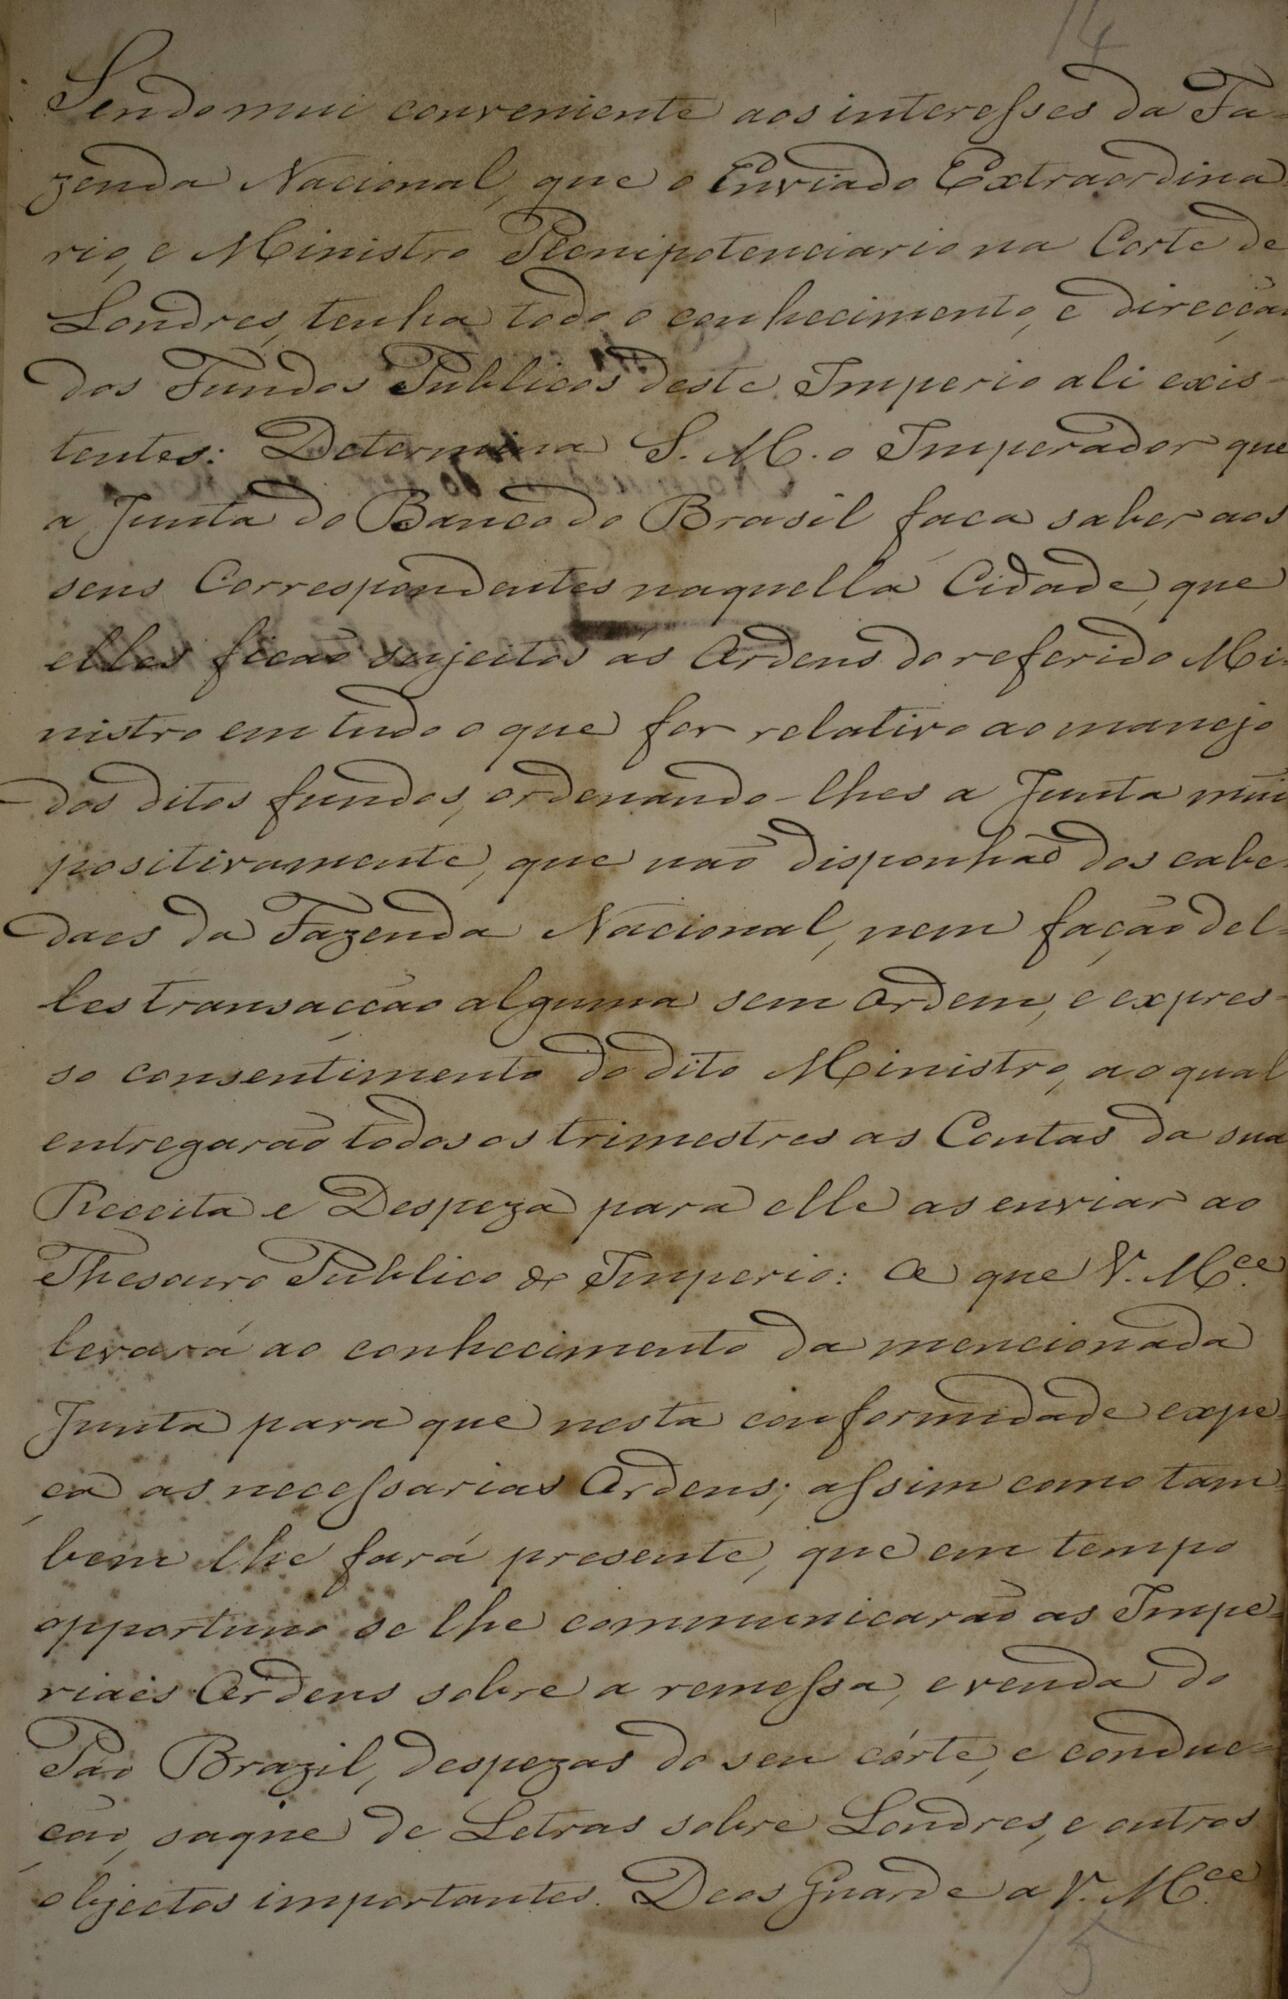 14
Sendo mui conveniente aos interesses da Fa-
zenda Nacional, que o Enviado Extraordina
rio, e Ministro Plenipotenciario na Corte de
Londres, tenha todo o conhecimento, e direcção
dos Fundos Publicos deste Imperio ali exis-
tentes: Determina S. M. o Imperador que
a Junta do Banco do Brasil faca saber aos
seus Correspondentes naquella Cidade, que
elles ficaõ sujeitos ás Ordens do referido Mi-
nistro em tudo o que for relativo ao manejo
dos ditos fundos, ordenando-lhes a Junta mui
positivamente, que naõ disponhaõ dos cabe-
daes da Fazenda Nacional, nem façaõ del-
les transacçao alguma sem Ordem, e expres-
so consentimento do dito Ministro, ao qual
entregaraõ todos os trimestres as Contas da sua
Receita e Despeza para elle as enviar ao
Thesouro Publico do Imperio: O que V. M.ce
levará ao conhecimento da mencionada
Junta para que nesta conformidade expe-
ça as necessarias Ordens; assim como tam-
bem lhe fará presente, que em tempo
opportuno se lhe communicaraõ as Impe-
riaes Ordens sobre a remessa, e venda do
Páo Brazil, despezas do seu córte, e conduc-
çaõ, saque de Letras sobre Londres, e outros
objectos importantes. Deos Guarde a V. M.ce
15